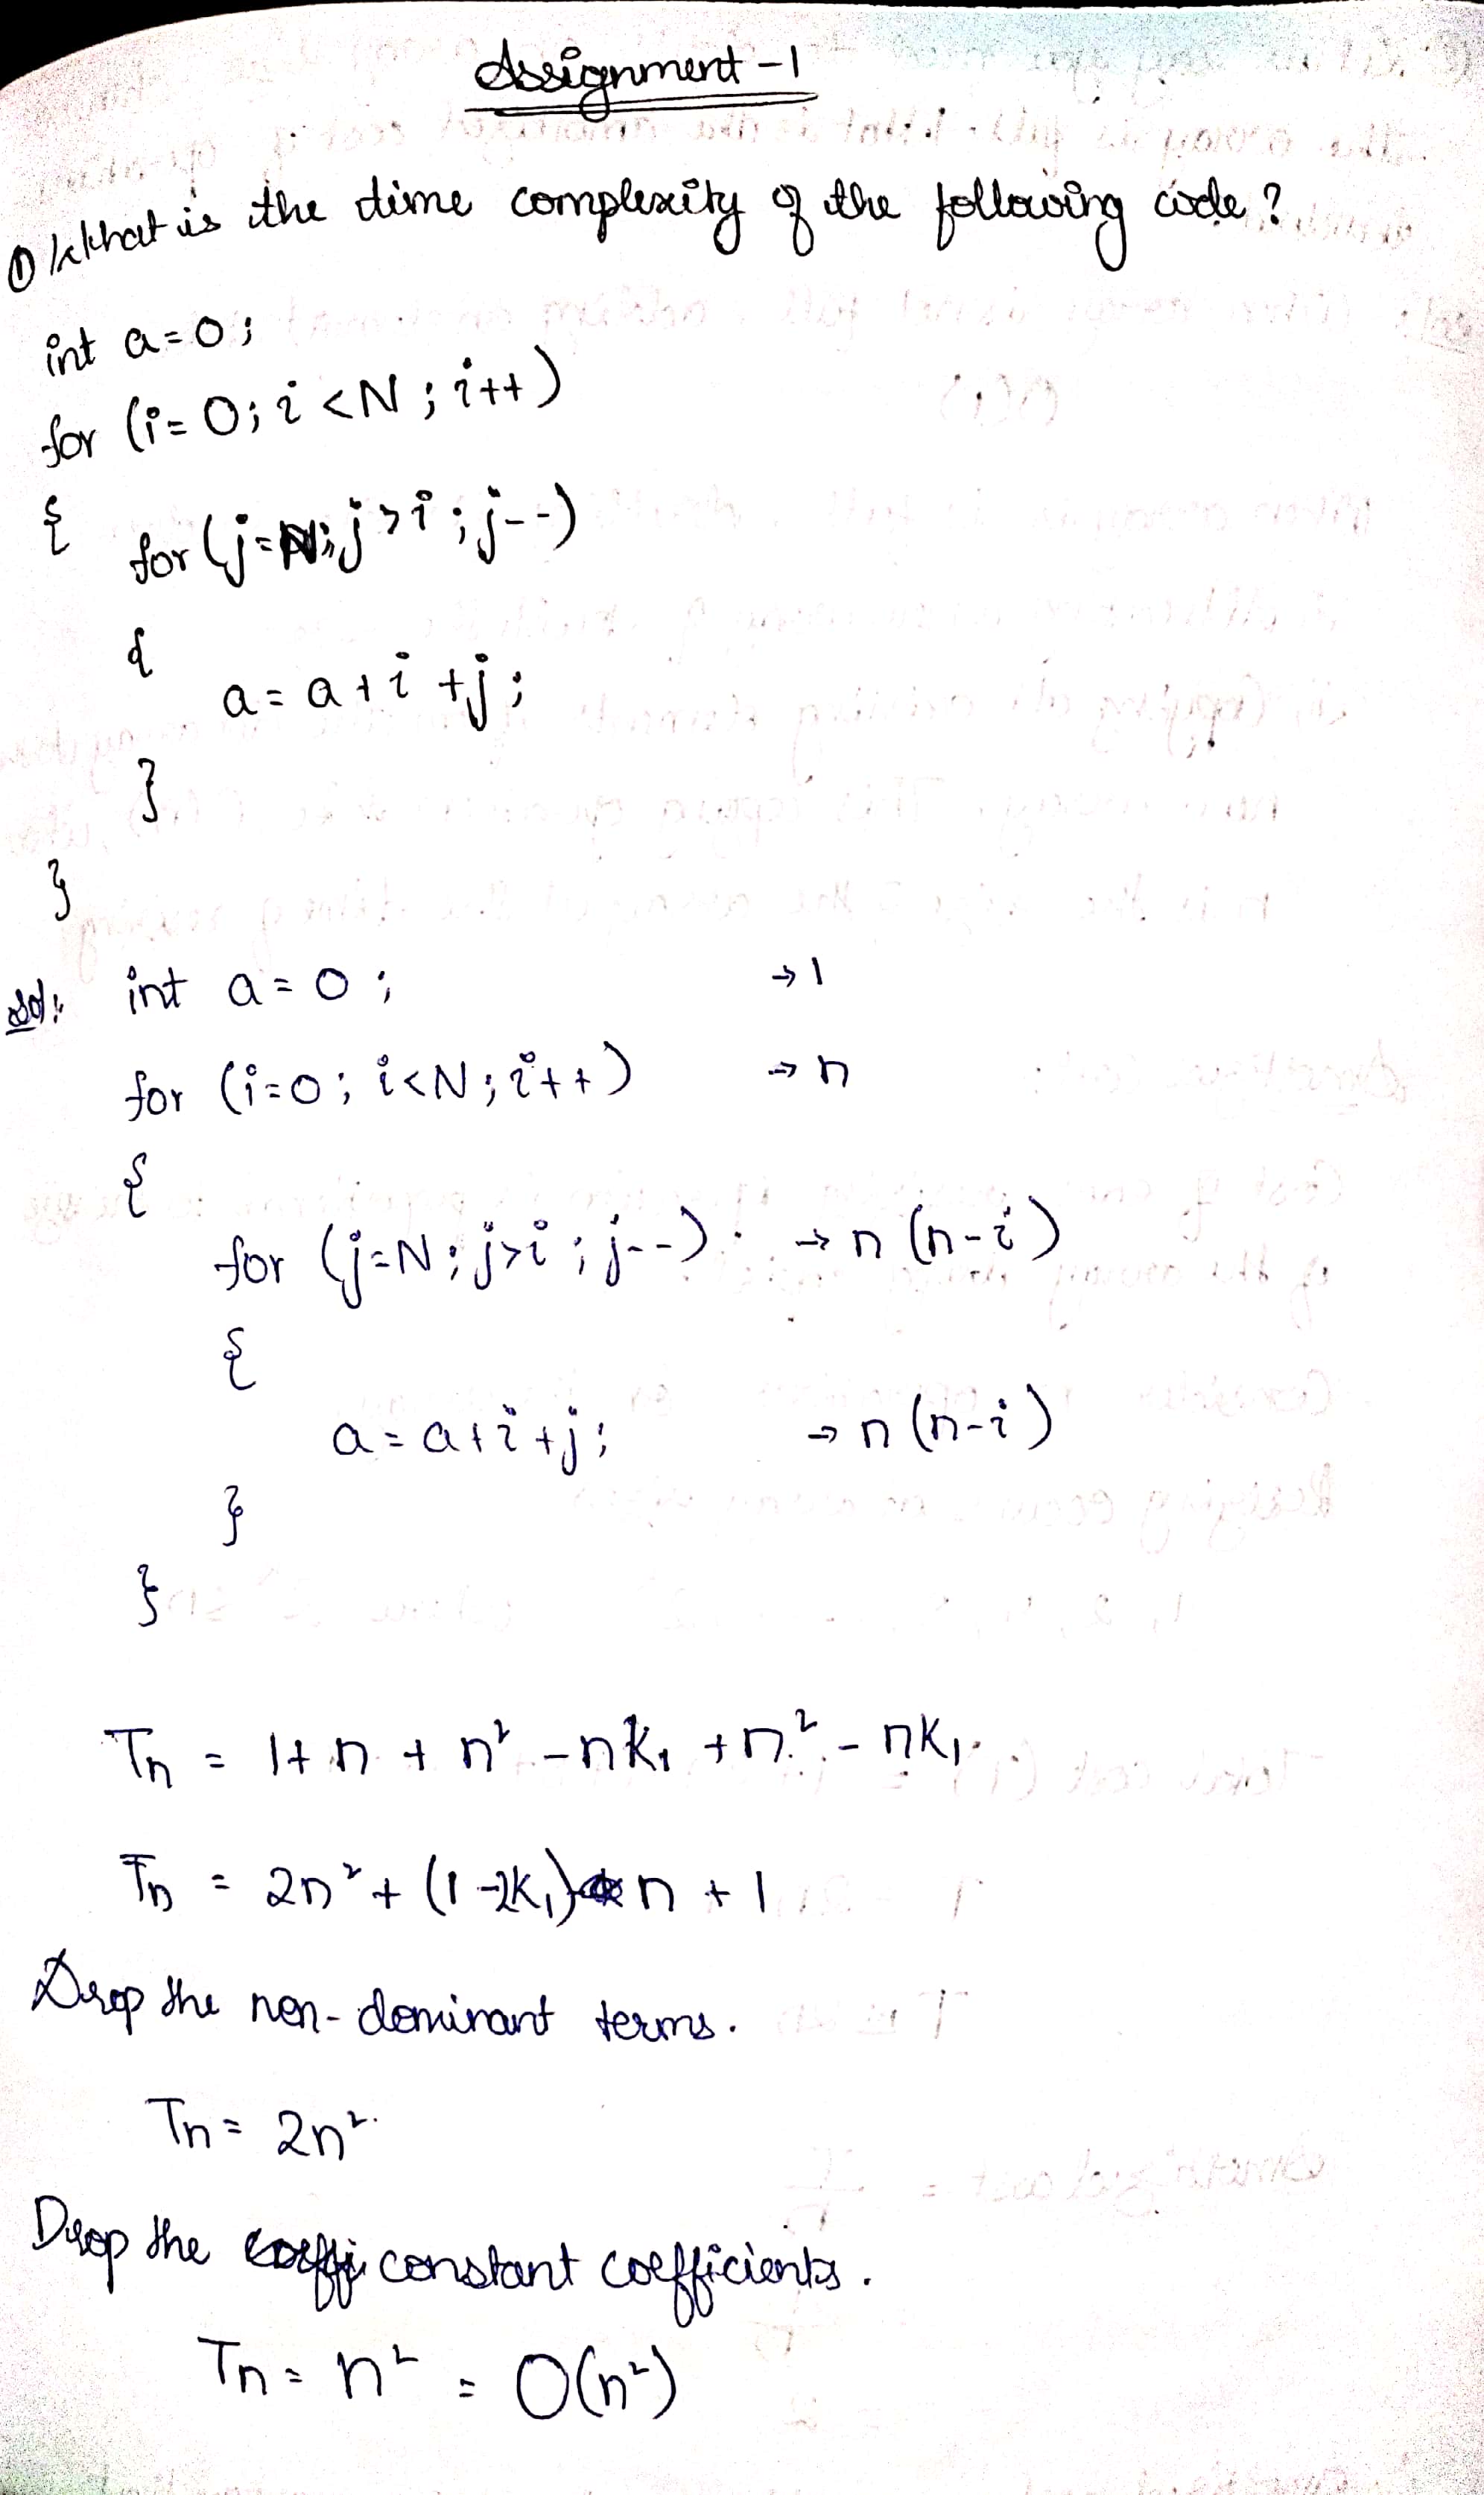 Assignment-1
① What is the time complexity of the following code?
int a=0;
for (i=0; i<N; i++)
{
for (j=N; j>i; j--)
{
a=a+i+j;
}
}
Sol: int a=0; →1
for (i=0; i<N; i++) →n
{
for (j=N; j>i; j--) →n(n-i)
{
a=a+i+j; →n(n-i)
}
}
Tn = 1+n+n²-nK₁+n²-nK₁
Tn = 2n²+(1-2K₁)n+1
Drop the non-dominant terms.
Tn = 2n²
Drop the constant coefficients.
Tn = n² = O(n²)